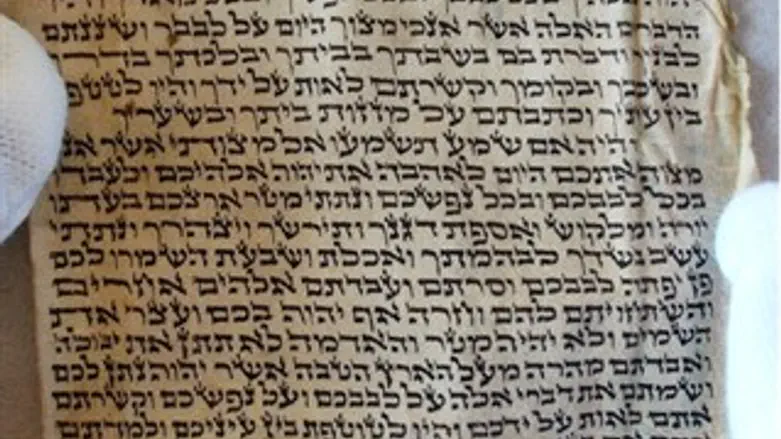 הדברים האלה אשר אנכי מצוך היום על לבבך ושננתם
לבניך ודברת בם בשבתך בביתך ובלכתך בדרך
ובשכבך ובקומך וקשרתם לאות על ידך והיו לטטפת
בין עיניך וכתבתם על מזזות ביתך ובשעריך
והיה אם שמע תשמעו אל מצותי אשר
מצוה אתכם היום לאהבה את יהוה אלהיכם ולעבדו
בכל לבבכם ובכל נפשכם ונתתי מטר ארצכם בעתו
יורה ומלקוש ואספת דגנך ותירשך ויצהרך ונתתי
עשב בשדך לבהמתך ואכלת ושבעת השמרו לכם
פן יפתה לבבכם וסרתם ועבדתם אלהים אחרים
והשתחויתם להם וחרה אף יהוה בכם ועצר את
השמים ולא יהיה מטר והאדמה לא תתן את יבולה
ואבדתם מהרה מעל הארץ הטבה אשר יהוה נתן לכם
ושמתם את דברי אלה על לבבכם ועל נפשכם וקשרתם
אתם לאות על ידכם והיו לטוטפת בין עיניכם ולמדתם